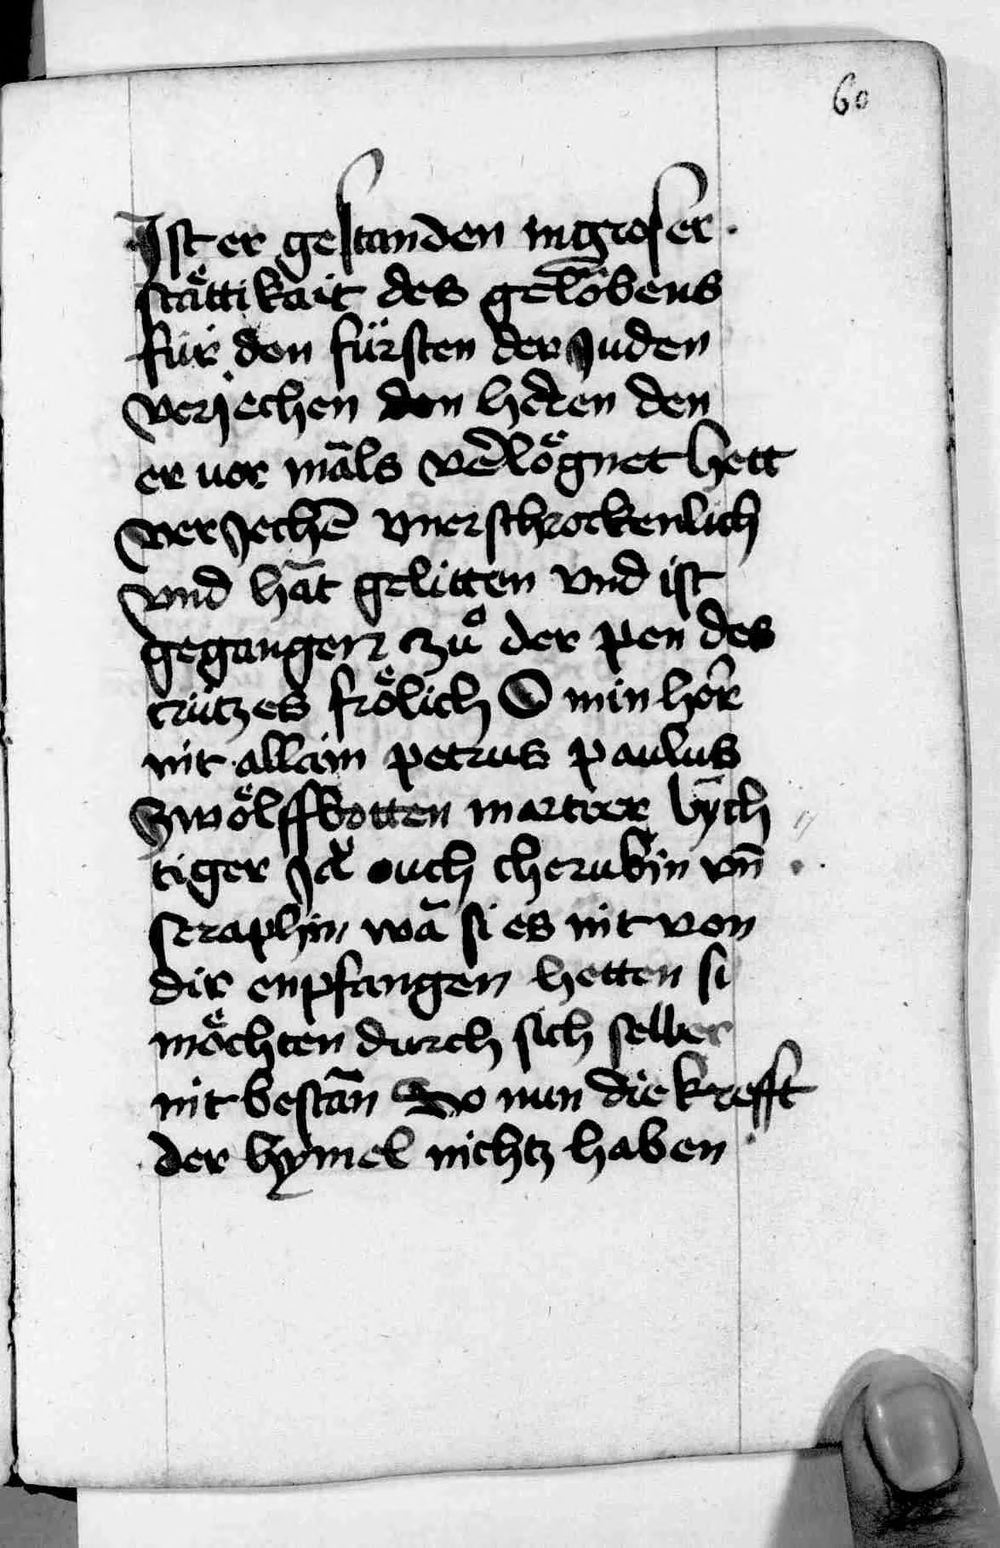 60
Ist er gestanden in groser
stättikait des gelobens
für den fürsten der Juden
verjechen den heren den
er vor māls v̄lögnet hett
verJechē vnerschrockenlich
vnd hāt gelitten vnd ist
gegangen zuͦ der pen des
crützes frölich O min her
nit allain petrus paulus
zwölffbotten martrer bych
tiger Ja ouch cherubin vn̄
seraphin wā si es nit von
dir enpfangen hetten si
möchten durch sich selber
nit bestān So nun die krefft
der hymel nichtz haben